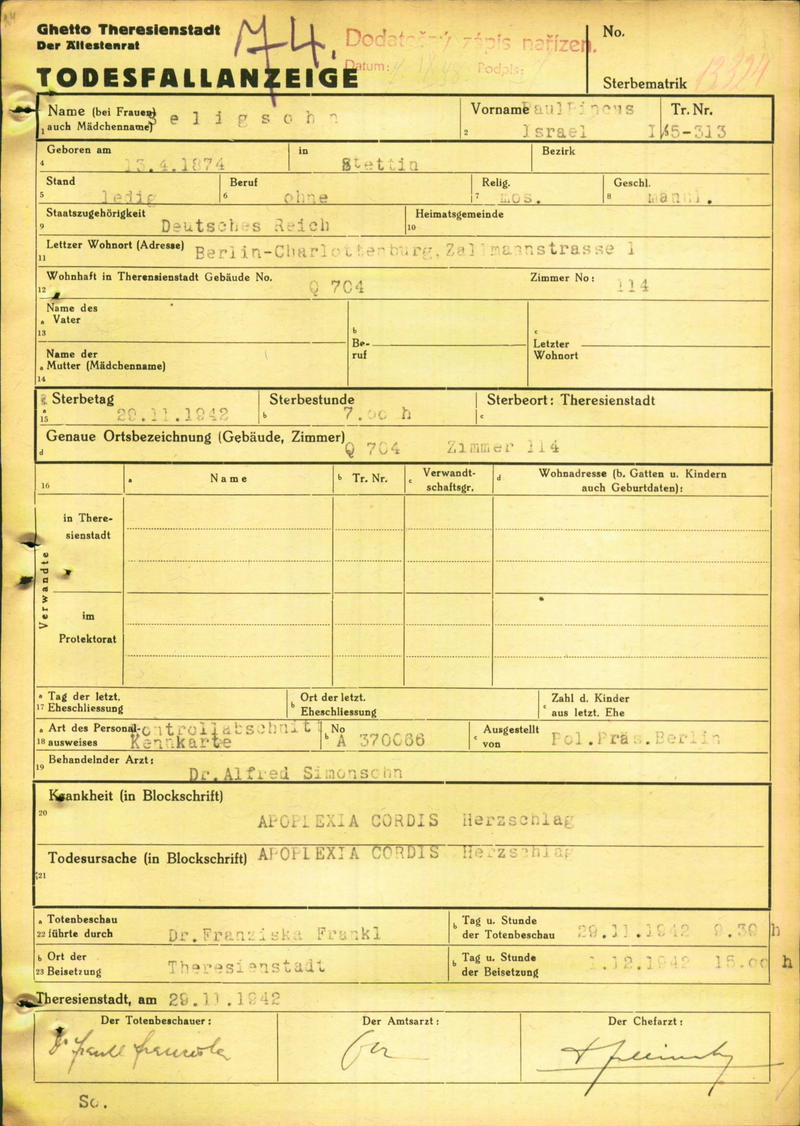 Ghetto Theresienstadt
Der Ältestenrat
TODESFALLANZEIGE
Dodatečný zápis nařízen.
Datum:
Podpis:
No.
Sterbematrik
1 Name (bei Frauen auch Mädchenname) Seligsohn
2 Vorname Paul Pincus Israel
Tr. Nr. I/45-313
4 Geboren am 13.4.1874 in Stettin Bezirk
5 Stand ledig 6 Beruf ohne 7 Relig. mos. 8 Geschl. männl.
9 Staatszugehörigkeit Deutsches Reich 10 Heimatsgemeinde
11 Lettzer Wohnort (Adresse) Berlin-Charlottenburg, strasse 1
12 Wohnhaft in Therensienstadt Gebäude No. Q 704 Zimmer No: 114
13 a Name des Vater b Beruf c Letzter Wohnort
14 a Name der Mutter (Mädchenname)
15 a Sterbetag 29.11.1942 b Sterbestunde 7.00 h c Sterbeort: Theresienstadt
d Genaue Ortsbezeichnung (Gebäude, Zimmer) Q 704 Zimmer 114
16 a Name b Tr. Nr. c Verwandtschaftsgr. d Wohnadresse (b. Gatten u. Kindern auch Geburtdaten):
Verwandte
in Theresienstadt
im Protektorat
17 a Tag der letzt. Eheschliessung b Ort der letzt. Eheschliessung c Zahl d. Kinder aus letzt. Ehe
18 a Art des Personalausweises Kontrollabschnitt Kennkarte b No A 370086 c Ausgestellt von Pol.Präs.Berlin
19 Behandelnder Arzt: Dr.Alfred Simonsohn
20 Krankheit (in Blockschrift) APOPLEXIA CORDIS Herzschlag
21 Todesursache (in Blockschrift) APOPLEXIA CORDIS Herzschlag
22 a Totenbeschau führte durch Dr.Franziska Frankl b Tag u. Stunde der Totenbeschau 29.11.1942 9.30 h
23 b Ort der Beisetzung Theresienstadt b Tag u. Stunde der Beisetzung 1.12.1942 15.00 h
Theresienstadt, am 29.11.1942
Der Totenbeschauer: Der Amtsarzt: Der Chefarzt:
Sc.